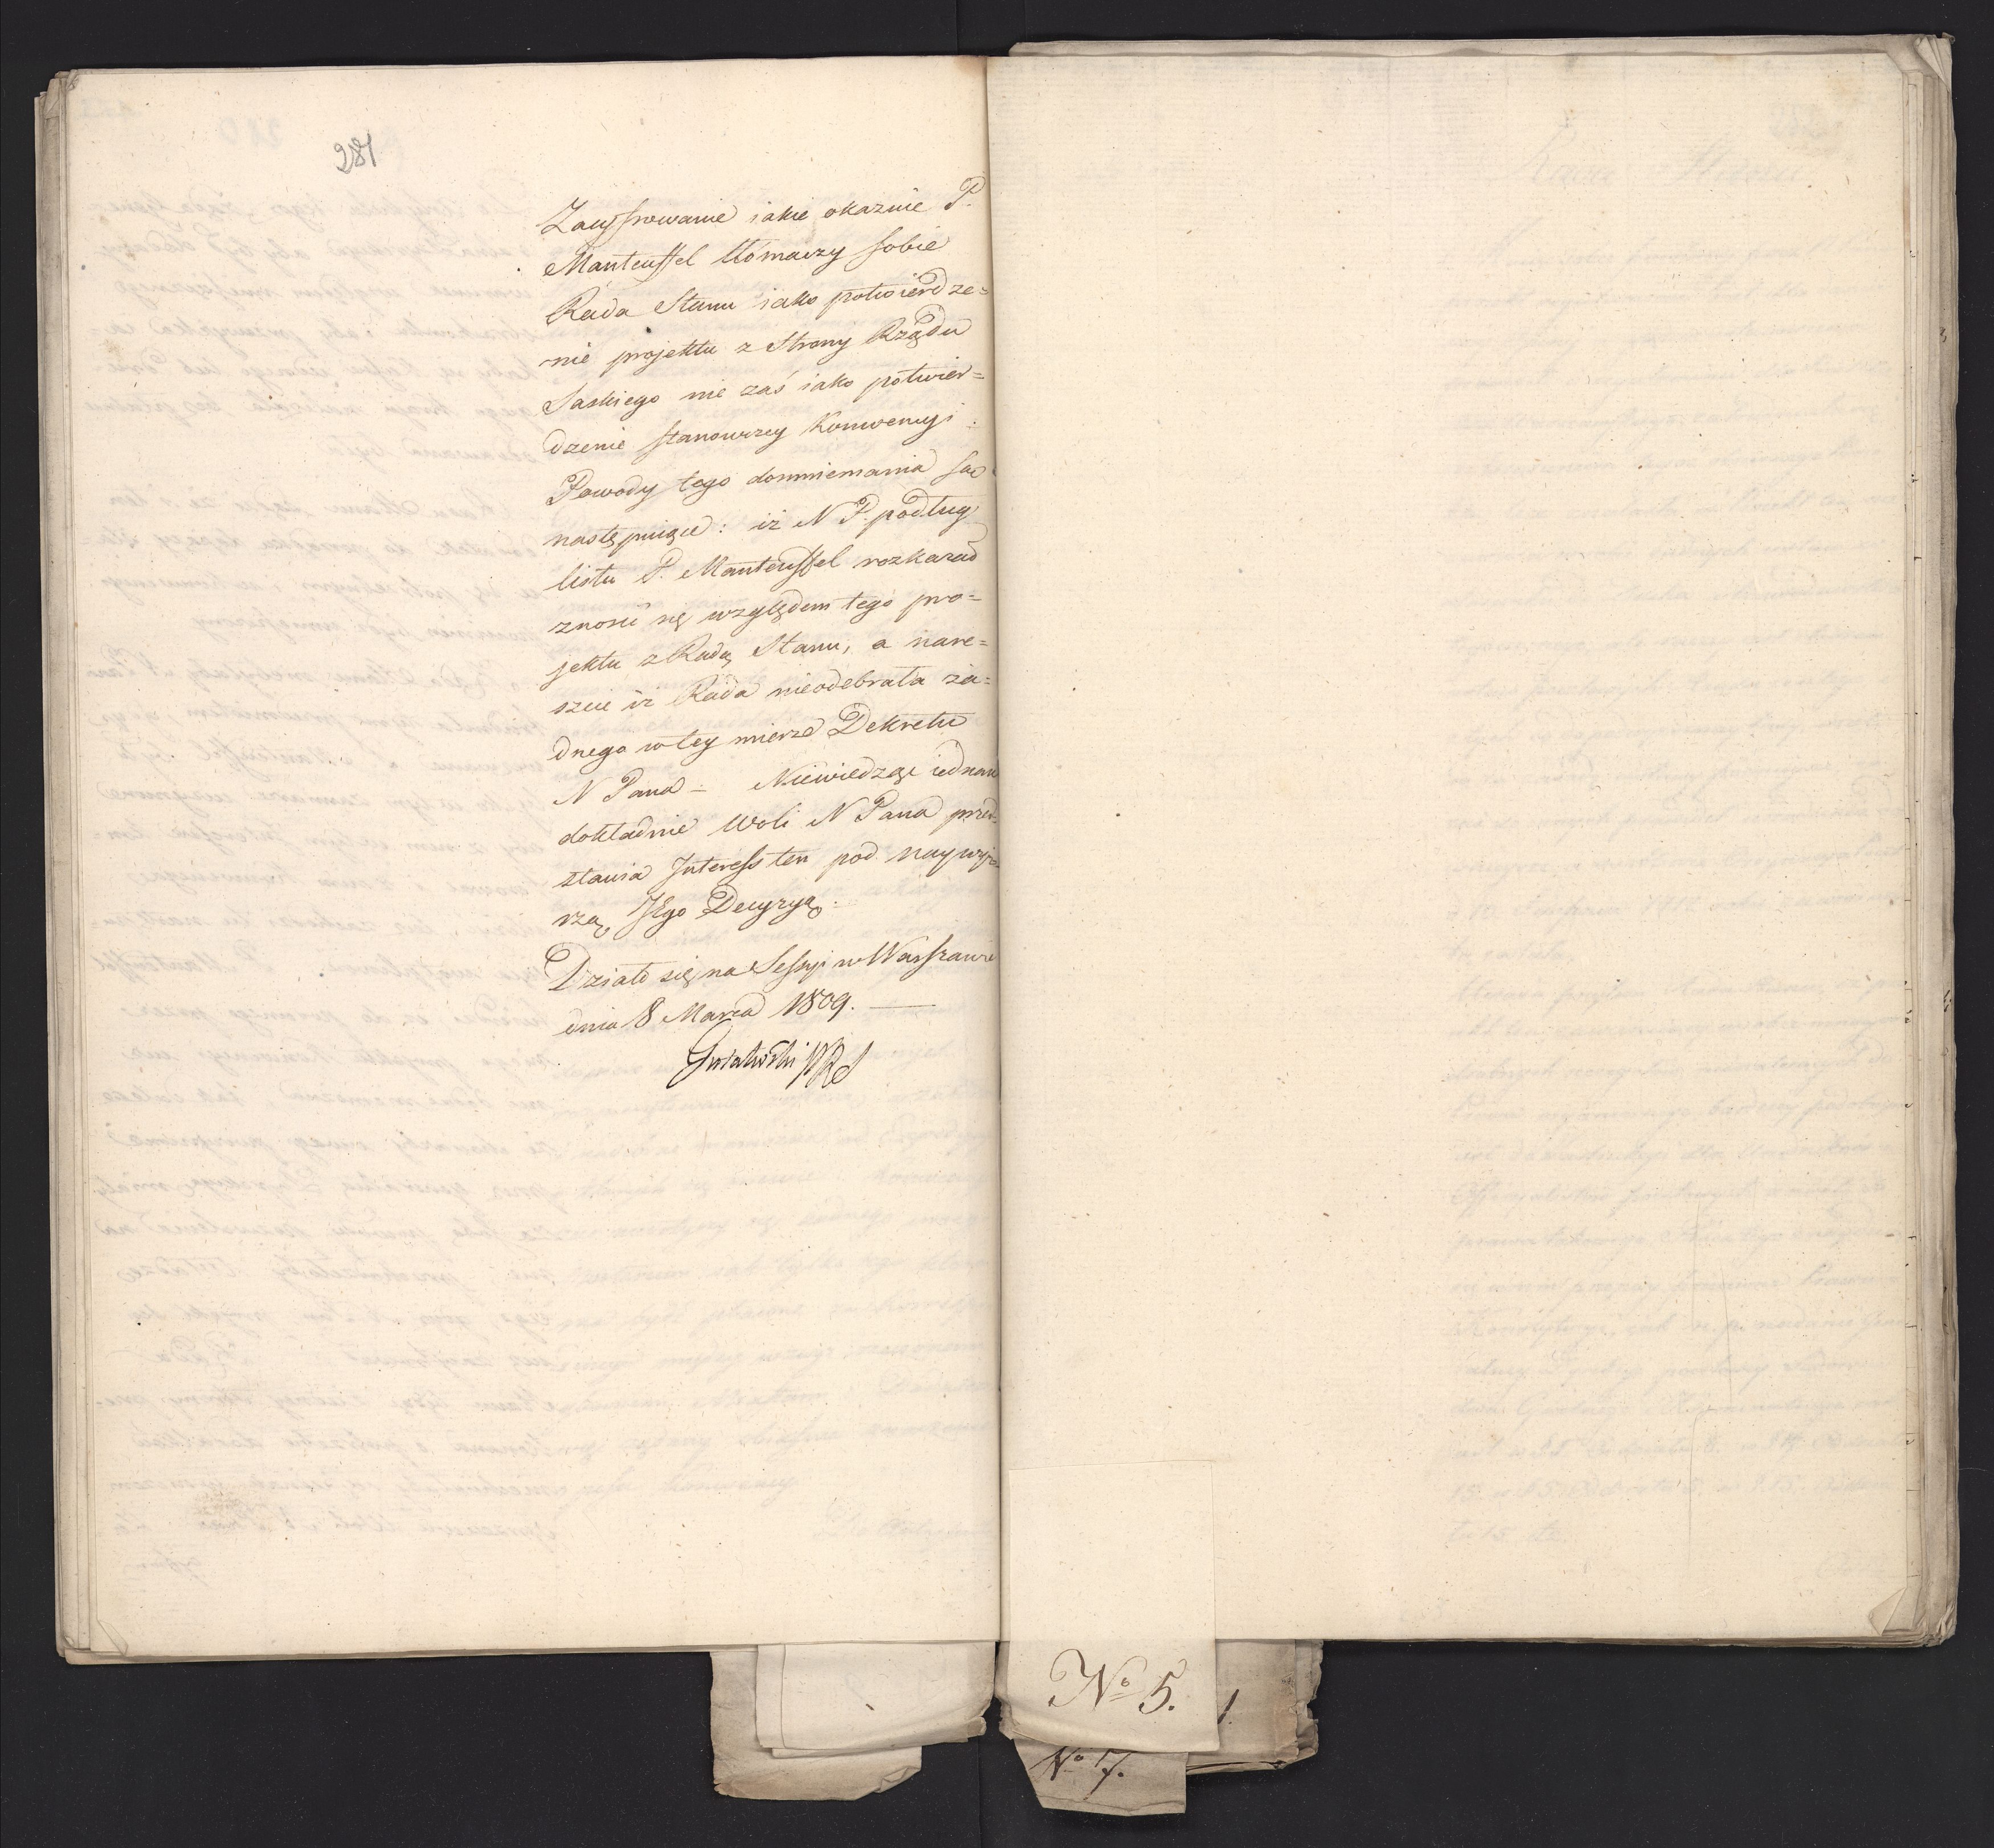 281
Zawyrowanie iakie okazuie P.
Manteuffel tłómaczy sobie
Rada Stanu iako potwierdze=
nie projektu z Strony Rządu
Saskiego nie zaś iako potwier=
dzenie stanowczey Konwencyi.
Powody tego domniemania są
następuiące: iż N P. podług
listu P. Manteuffel rozkazał
znosić się względem tego pro=
jektu z Radą Stanu, a nare=
szcie iż Rada nieodebrała ża=
dnego w tey mierze Dekretu
N Pana = Niewiedząc iednak
dokładnie Woli N Pana przed=
stawia Interess ten pod naywyż=
szą JEgo Decyzyą.
Działo się na Sessyi w Warszawie
dnia 8 Marca 1809. —
Gutakowski PRS
No 5.
1.
No 7.